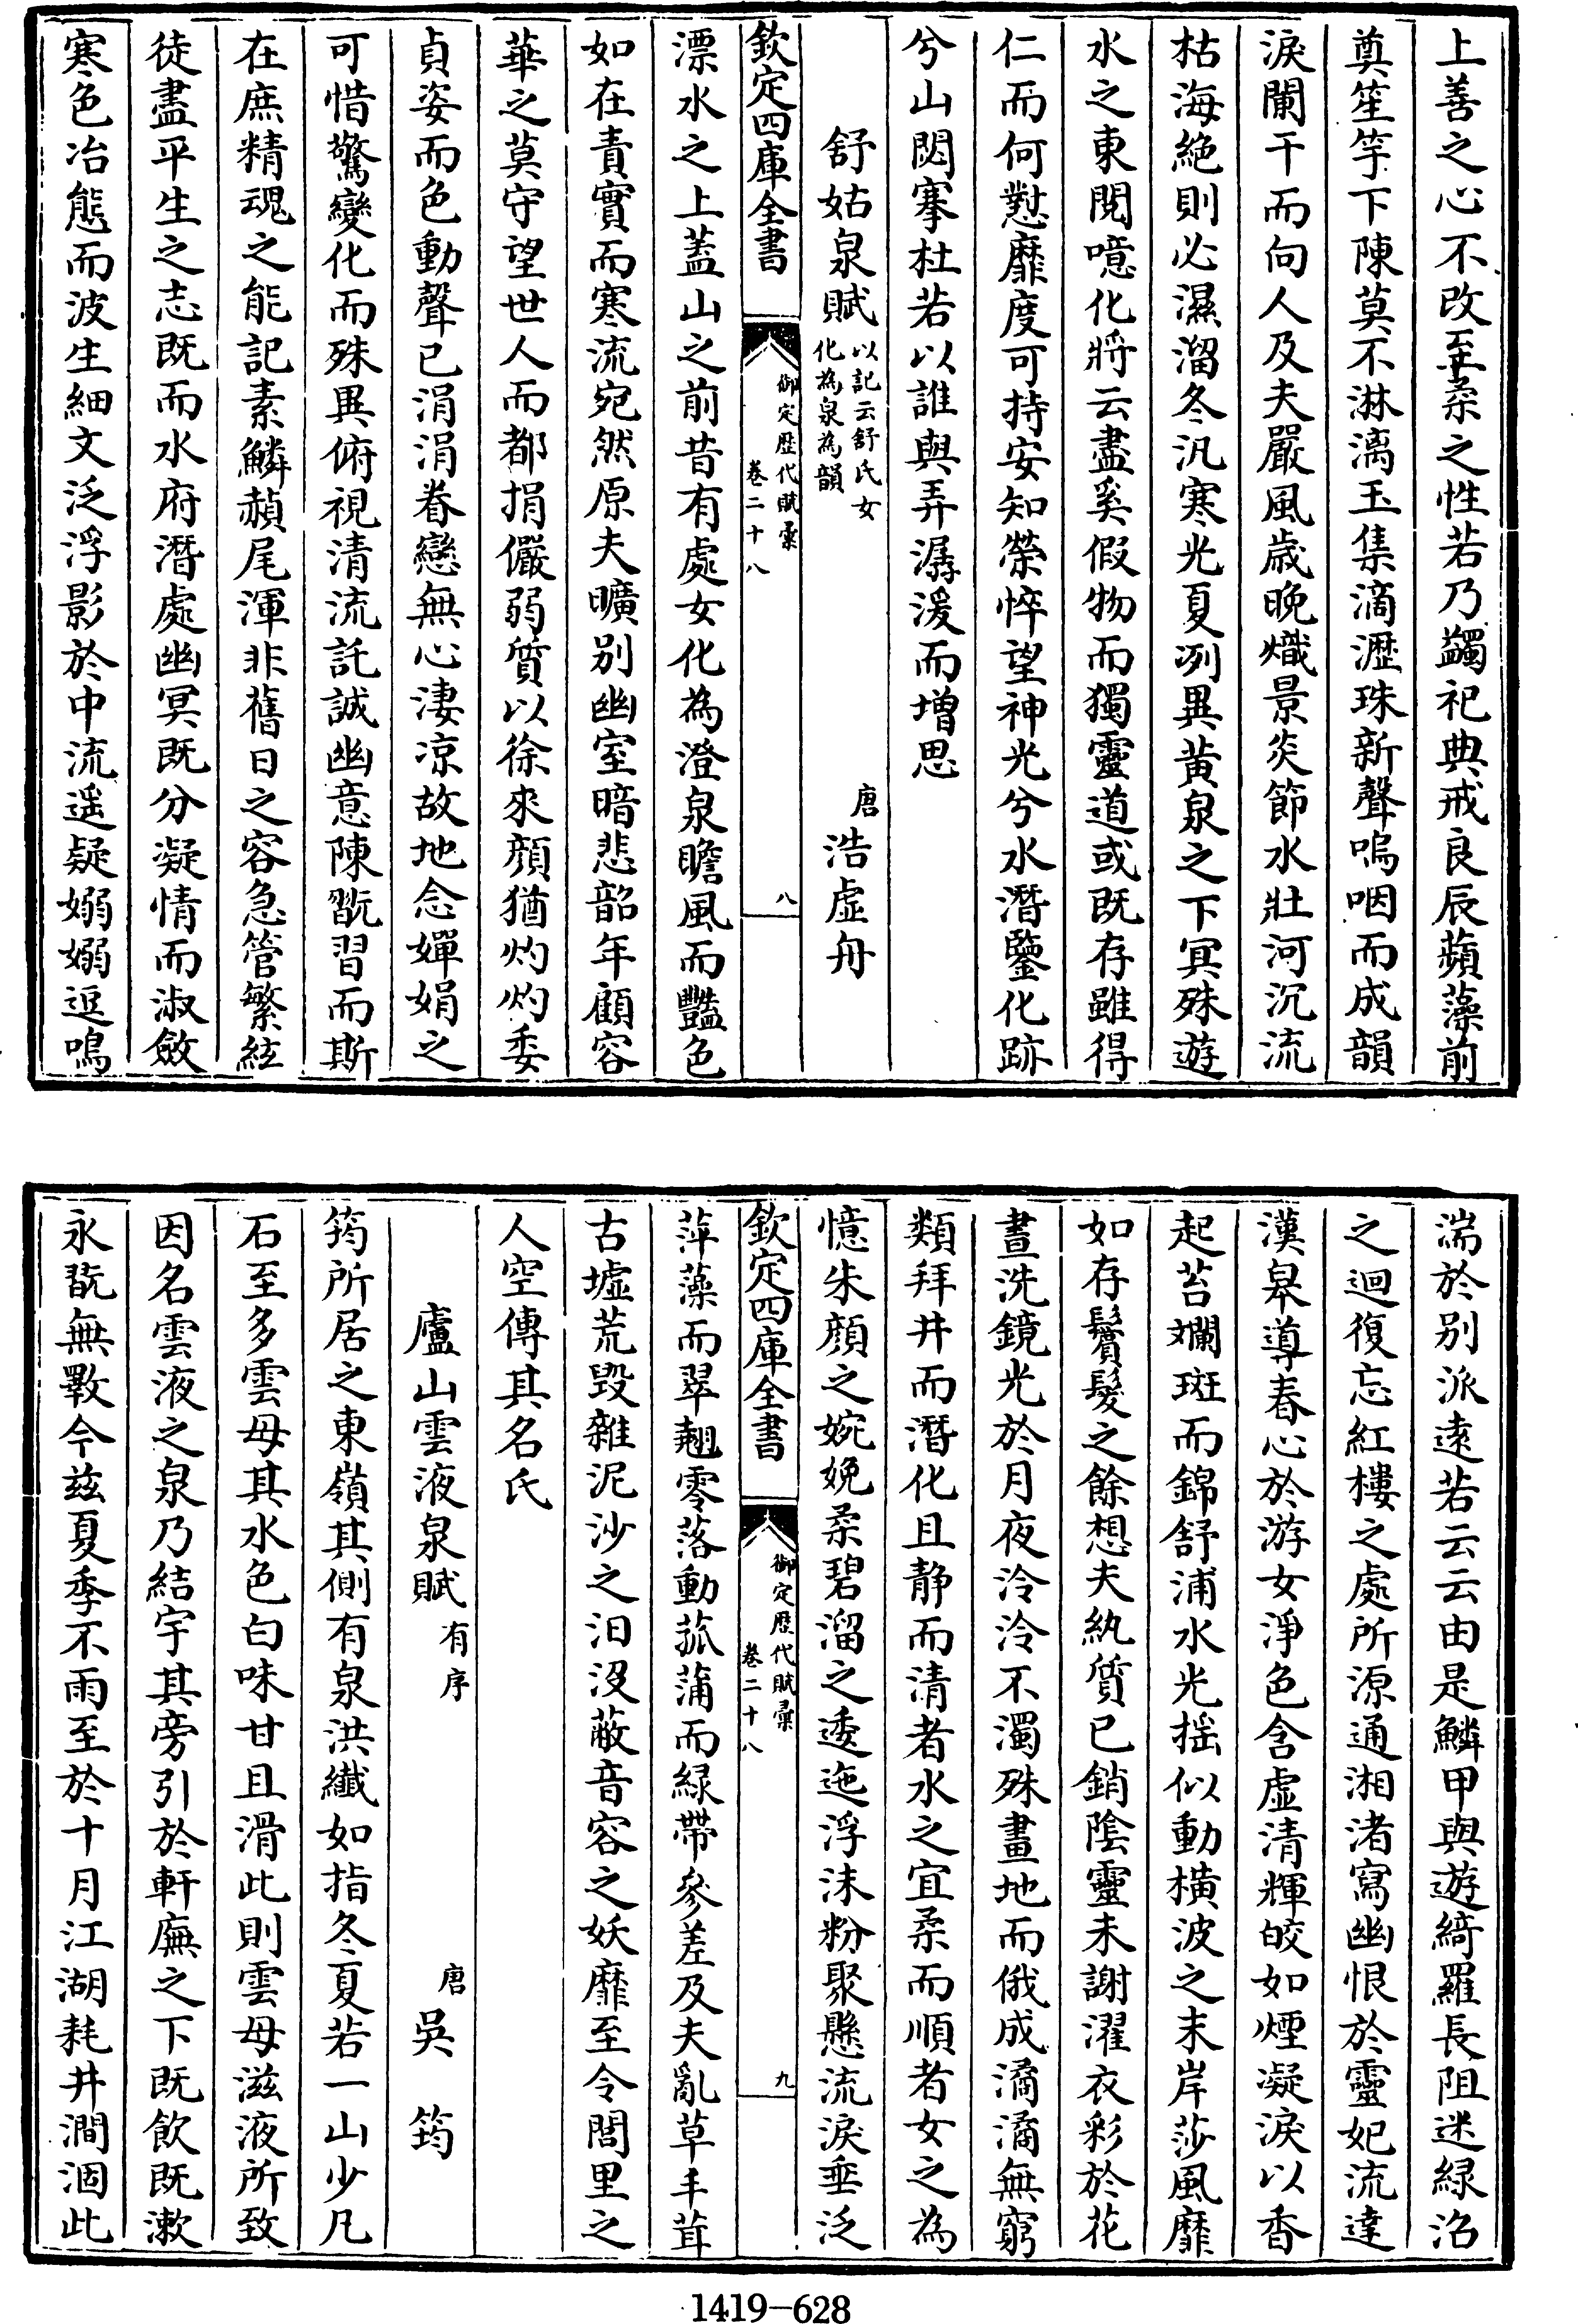 上善之心不改至柔之性若乃蠲祀典戒良辰蘋藻前
奠笙竽下陳莫不淋漓玉集滴瀝珠新聲嗚咽而成韻
淚闌干而向人及夫嚴風歲晚熾景炎節水壯河沉流
枯海絶則必濕溜冬汎寒光夏冽異黄泉之下冥殊遊
水之東閱噫化將云盡奚假物而獨靈道或既存雖得
仁而何懟靡度可持安知榮悴望神光兮水潛鑒化跡
兮山閟搴杜若以誰與弄潺湲而增思
舒姑泉賦 以記云舒氏女化為泉為韻 唐 浩虚舟
欽定四庫全書 御定歷代賦彙 卷二十八 八
漂水之上蓋山之前昔有處女化為澄泉瞻風而豔色
如在責實而寒流宛然原夫曠别幽室暗悲韶年顧容
華之莫守望世人而都捐儼弱質以徐來顔猶灼灼委
貞姿而色動聲已涓涓眷戀無心淒凉故地念嬋娟之
可惜驚變化而殊異俯視清流託誠幽意陳翫習而斯
在庶精魂之能記素鱗赬尾渾非舊日之容急管繁絃
徒盡平生之志既而水府潛處幽冥既分凝情而淑斂
寒色冶態而波生細文泛浮影於中流遥疑嫋嫋逗鳴
湍於别派遠若云云由是鱗甲與遊綺羅長阻迷緑沼
之迴復忘紅樓之處所源通湘渚寫幽恨於靈妃流達
漢皋導春心於游女淨色含虚清輝皎如煙凝淚以香
起苔斕斑而錦舒浦水光揺似動横波之末岸莎風靡
如存鬒髮之餘想夫紈質已銷陰靈未謝濯衣彩於花
晝洗鏡光於月夜泠泠不濁殊畫地而俄成潏潏無窮
類拜井而潛化且静而清者水之宜柔而順者女之為
憶朱顔之婉娩柔碧溜之逶迤浮沫粉聚懸流淚垂泛
欽定四庫全書 御定歷代賦彙 卷二十八 九
萍藻而翠翹零落動菰蒲而緑帶參差及夫亂草丰茸
古墟荒毁雜泥沙之汨没蔽音容之妖靡至令閭里之
人空傳其名氏
廬山雲液泉賦 有序 唐 吳筠
筠所居之東嶺其側有泉洪纖如指冬夏若一山少凡
石至多雲母其水色白味甘且滑此則雲母滋液所致
因名雲液之泉乃結宇其旁引於軒廡之下既飲既漱
永翫無斁今兹夏季不雨至於十月江湖耗井澗涸此
1419-628